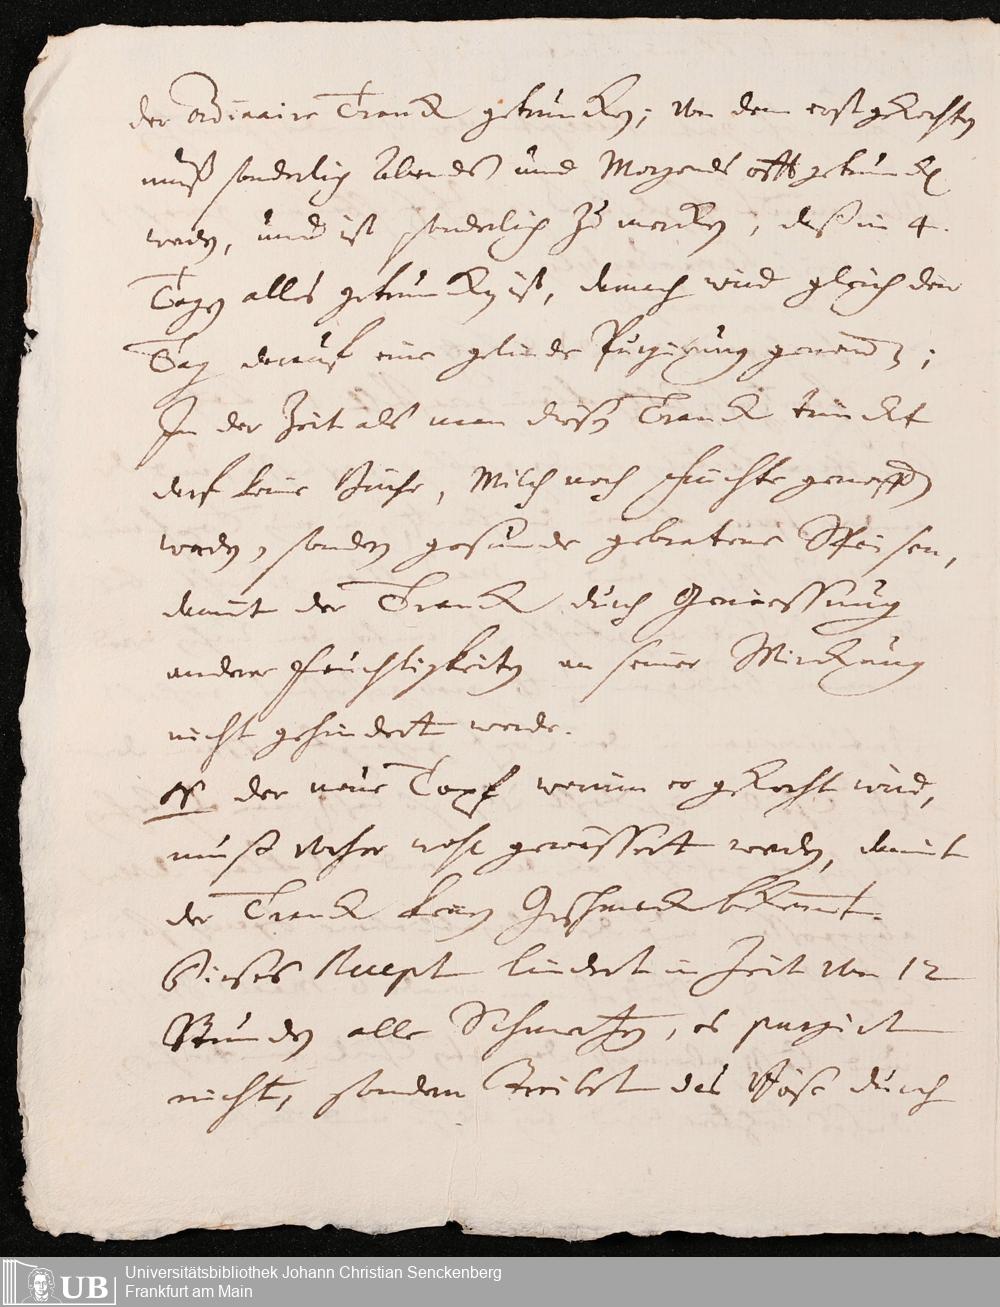 der ordinaire Tranck getruncken; von dem erst gekochten
muß sonderlich Abends und Morgends offt getruncken
werden, und ist sonderlich zu mercken, daß in 4.
Tagen alles getruncken ist, darnach wird gleich den
Tag darauf eine gelinde Purgirung
In der Zeit als man diesen Tranck trincket
darf keine Milch noch Früchte genossen
werden, sondern gesunde gebratene Speisen,
damit der Tranck durch Geniessung
anderer Feuchtigkeiten an seiner Wirckung
nicht gehindert werde.
der neue Topf worinn es gekocht wird,
muß vorher wohl gewässert werden, damit
der Tranck keinen Geschmack bekommt.
Dieses Recept lindert in Zeit von 12
Stunden alle Schmertzen, es purgirt
nicht, sondern treibet das Böse durch
UB
Universitätsbibliothek Johann Christian Senckenberg
Frankfurt am Main